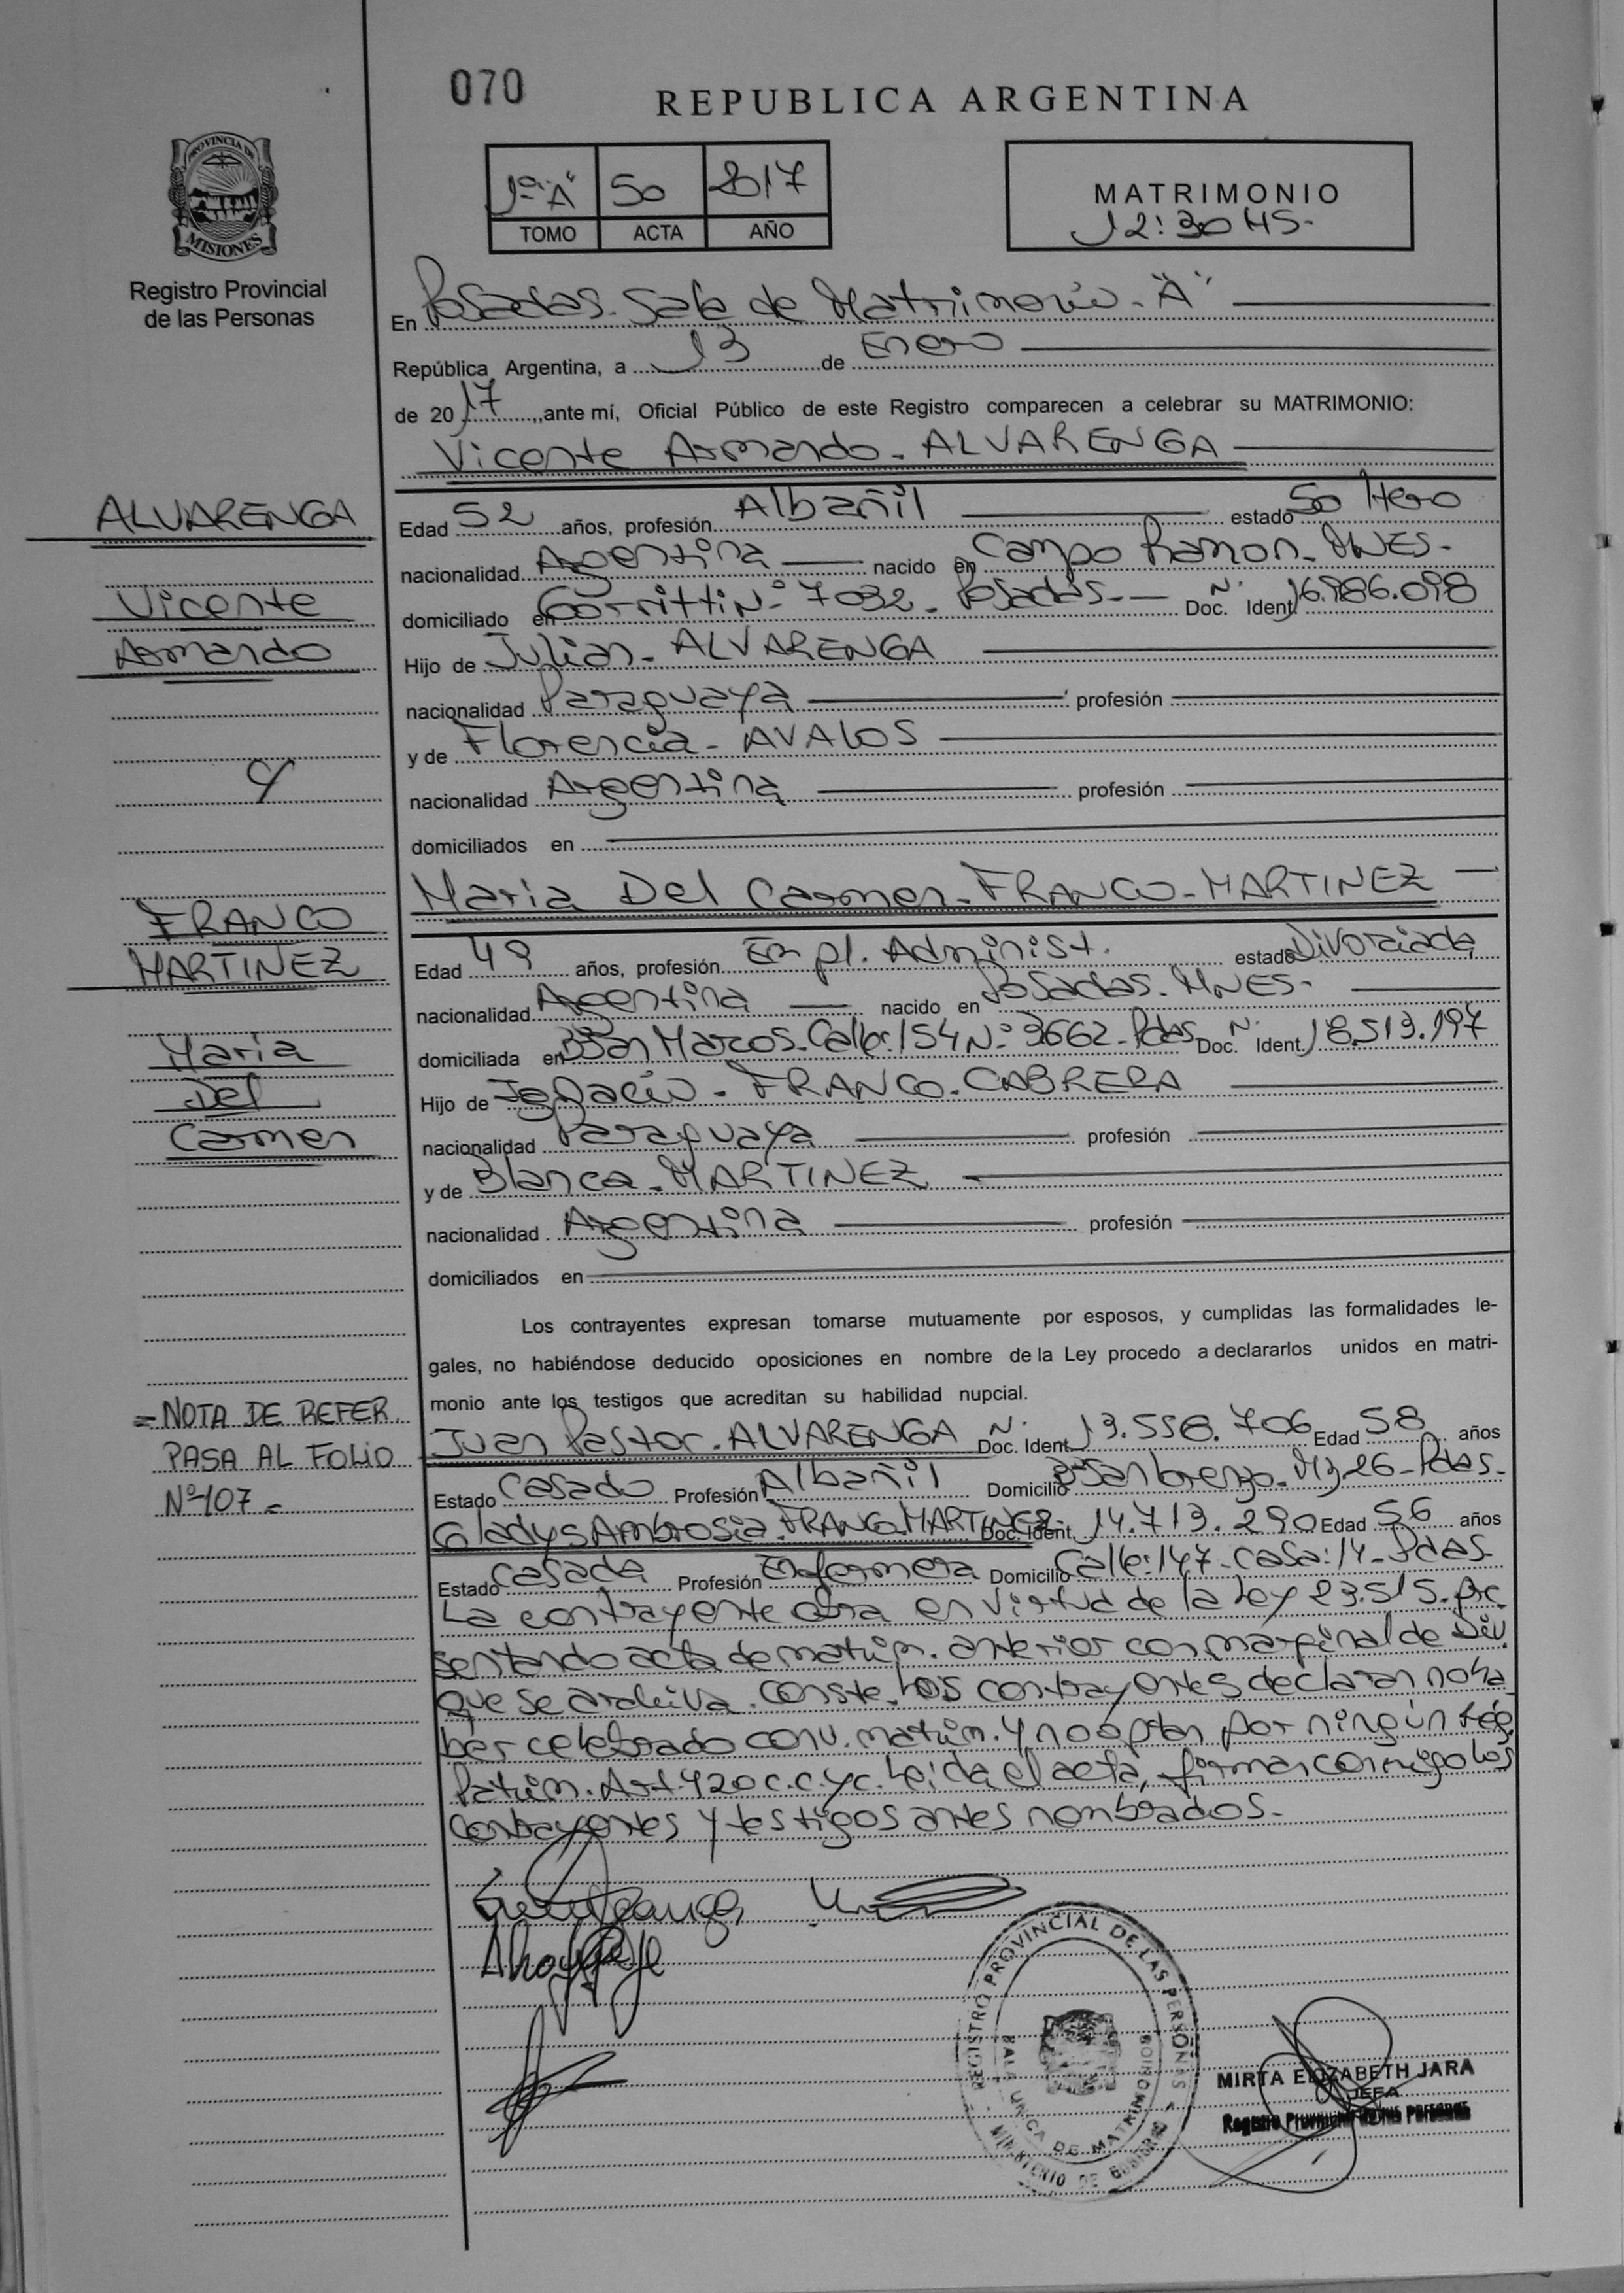 070
REPUBLICA ARGENTINA
PROVINCIA DE
MISIONES
Registro Provincial
de las Personas
1º "A" 50 2017
TOMO ACTA AÑO
MATRIMONIO
12:30 HS-
En Posadas - Sala de Matrimonio - "A"
República Argentina, a 13 de Enero
de 2017, ante mí, Oficial Público de este Registro comparecen a celebrar su MATRIMONIO:
Vicente Armando - ALVARENGA
ALVARENGA
Vicente
Armando
Edad 52 años, profesión Albañil estado Soltero
nacionalidad Argentina nacido en Campo Ramon - MNES-
domiciliado en Gorritti Nº 7032 - Posadas - Doc. Ident Nº 16.986.098
Hijo de Julian - ALVARENGA
nacionalidad Paraguaya profesión
y de Florencia - AVALOS
nacionalidad Argentina profesión
domiciliados en
Maria Del Carmen - FRANCO - MARTINEZ
C/
FRANCO
MARTINEZ
Maria
Del
Carmen
Edad 49 años, profesión Empl. Administ. estado Divorciada
nacionalidad Argentina nacido en Posadas - MNES-
domiciliada en Bº San Marcos - Calle: 154 Nº 3662 - Pdas Doc. Ident Nº 18.513.197
Hijo de Ignacio - FRANCO - CABRERA
nacionalidad Paraguaya profesión
y de Blanca - MARTINEZ
nacionalidad . Argentina profesión
domiciliados en
Los contrayentes expresan tomarse mutuamente por esposos, y cumplidas las formalidades le-
gales, no habiéndose deducido oposiciones en nombre de la Ley procedo a declararlos unidos en matri-
monio ante los testigos que acreditan su habilidad nupcial.
= NOTA DE REFER.
PASA AL FOLIO
Nº 107 =
Juan Pastor - ALVARENGA Doc. Ident Nº 13.558.706 Edad 58 años
Estado Casado Profesión Albañil Domicilio Bº San Lorenzo - Mz 26 - Pdas-
Gladys Ambrosia - FRANCO - MARTINEZ - Doc. Ident. 14.713.290 Edad 56 años
Estado Casada Profesión Enfermera Domicilio Calle: 147 - Casa: 14 - Pdas-
La contrayente obra en virtud de la Ley 23.515 - pre
sentando acta de matrim. anterior con marginal de Div.
que se archiva. Conste. Los contrayentes declaran no ha
ber celebrado conv. matrim. y no optan por ningún rég.
Patrim. Art 420 c.c.yc. Leida el acta, firman conmigo los
contrayentes y testigos antes nombrados-
REGISTRO PROVINCIAL DE LAS PERSONAS
SALA UNICA DE MATRIMONIOS
MINISTERIO DE GOBIERNO
MIRTA ELIZABETH JARA
JEFA
Registro Provincial de las Personas